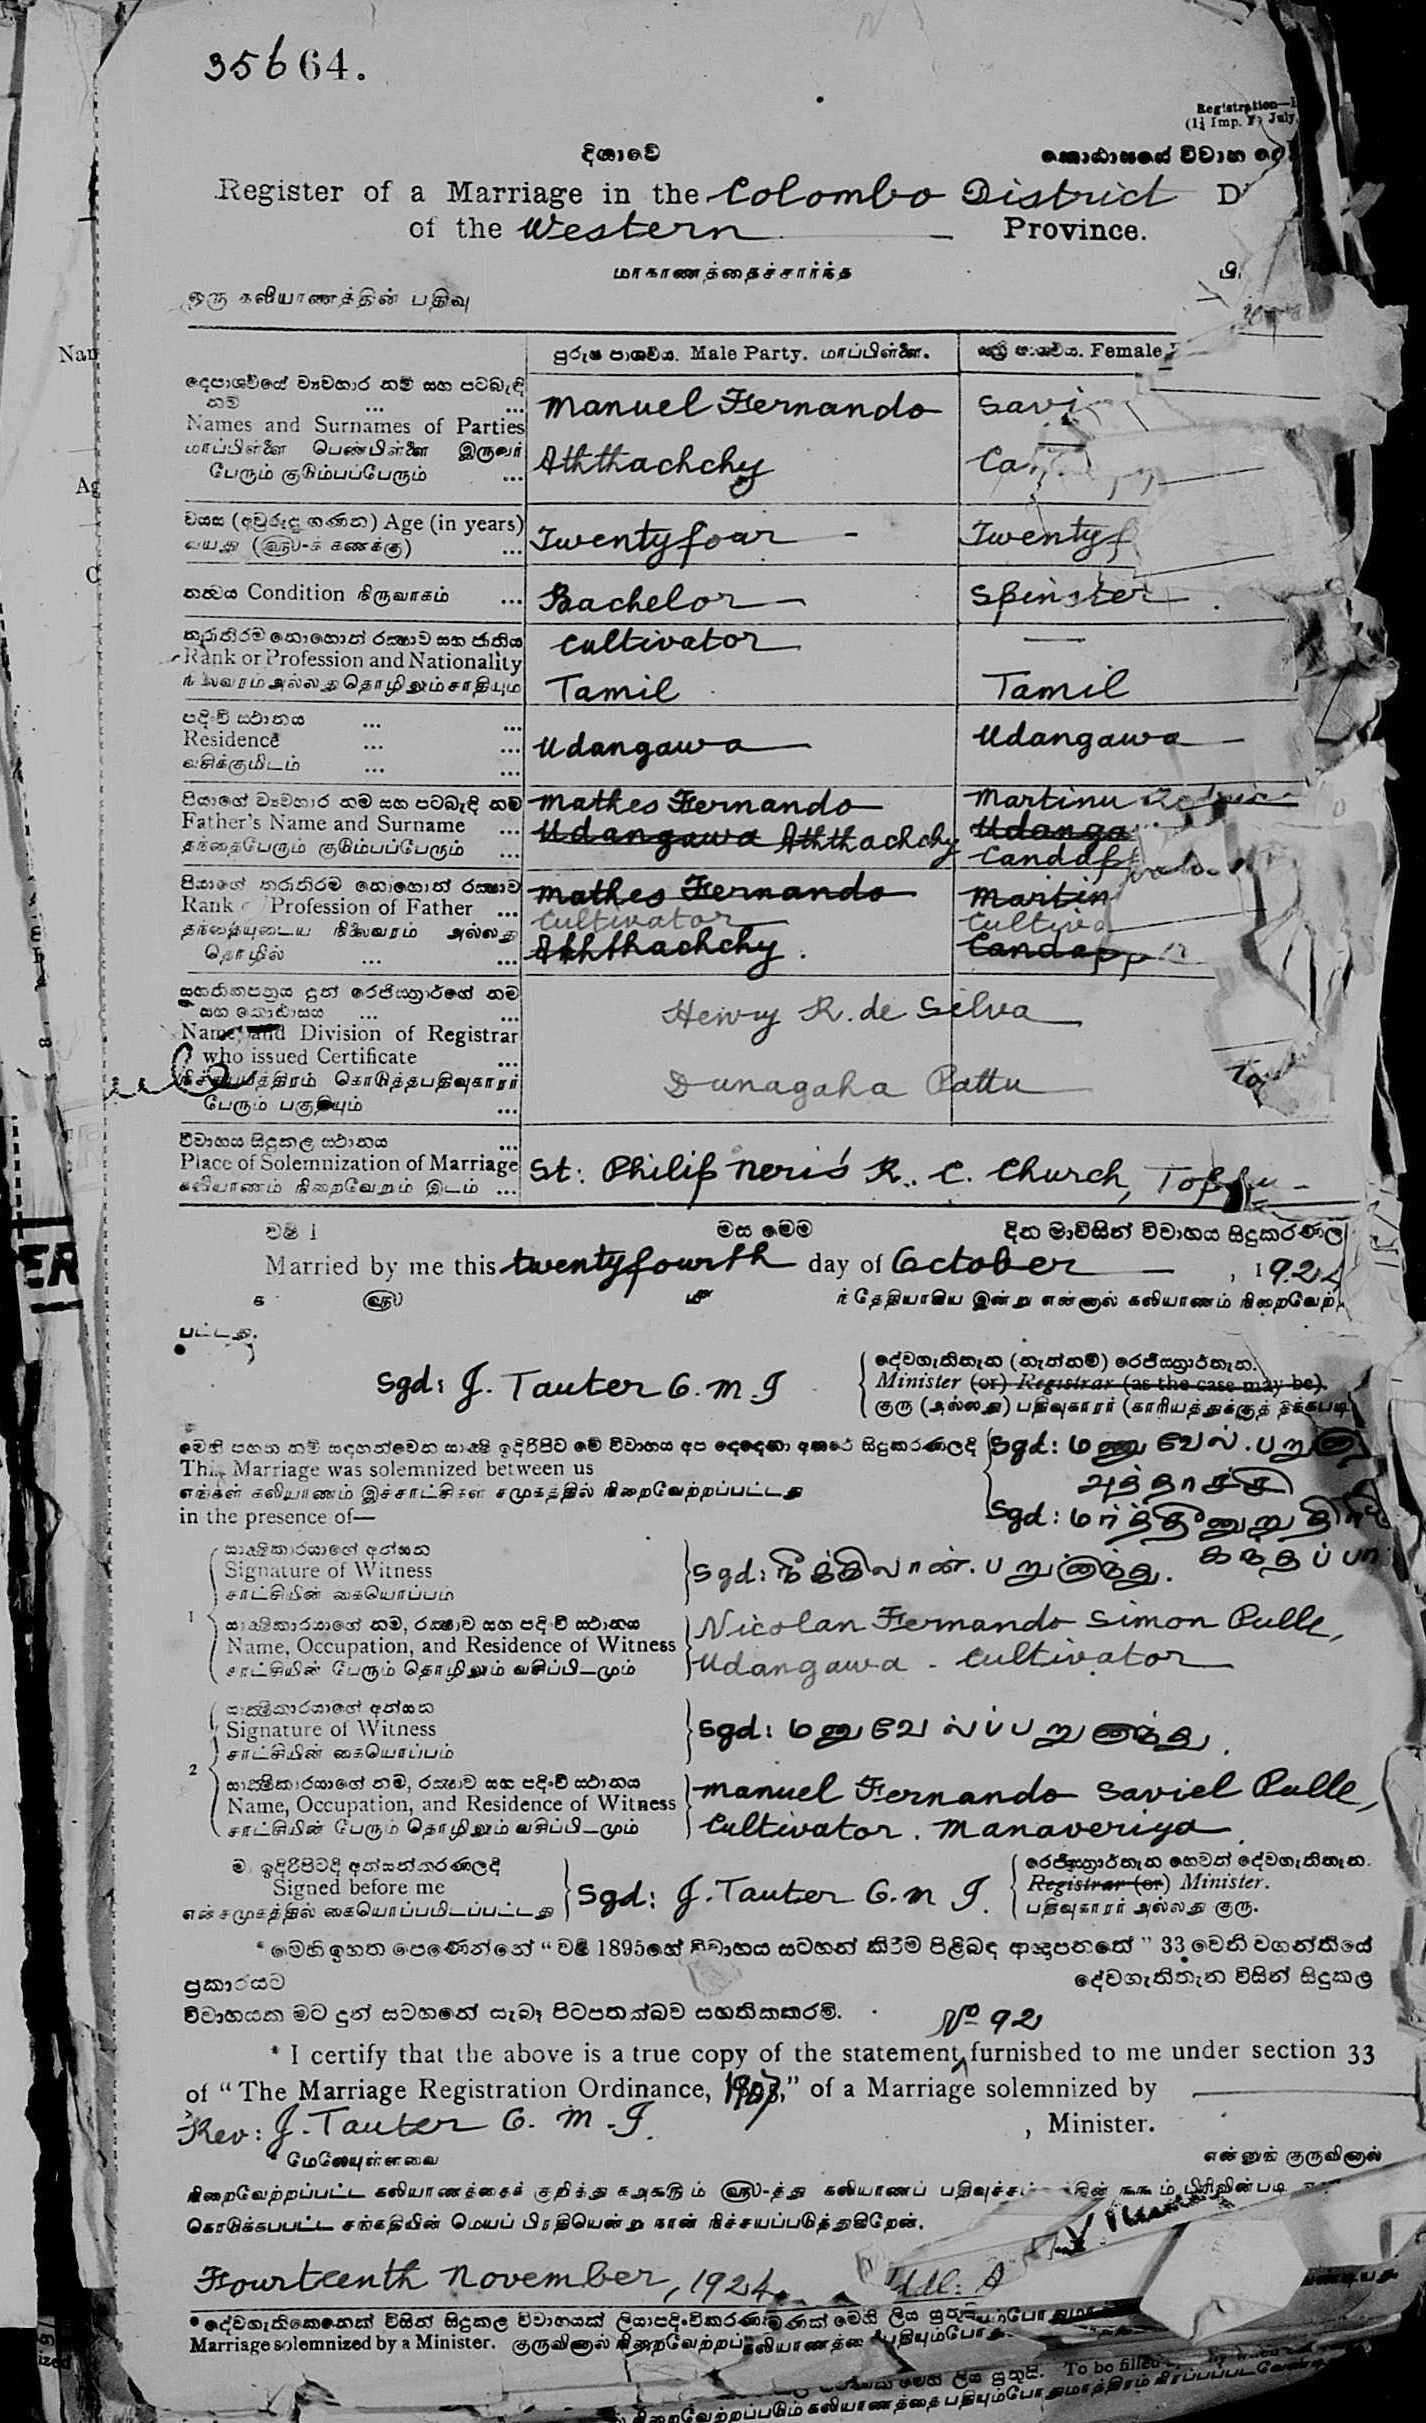 35664.
Registration—
(1¼ Imp. F) July
දිශාවේ කොට්ඨාසයේ විවාහ
Register of a Marriage in the Colombo District D
of the Western Province.
மாகாணத்தைச்சார்ந்த
ஒரு கலியாணத்தின் பதிவு
පුරුෂ පාර්ශවය. Male Party. மாப்பிள்ளை. ස්ත්‍රී පාර්ශවය. Female
දෙපාර්ශවයේ ව්‍යවහාර නම් සහ පටබැඳි
නම් ... ...
Names and Surnames of Parties
மாப்பிள்ளை பெண்பிள்ளை இருவர்
பேரும் குடும்பப்பேரும் ...
Manuel Fernando
Aththachchy
Savi
Ca
වයස (අවුරුදු ගණන) Age (in years)
வயது (௵-க் கணக்கு) ...
Twentyfour Twentyf
තත්වය Condition நிருவாகம் ... Bachelor Spinster
තරාතිරම නොහොත් රක්ෂාව සහ ජාතිය
Rank or Profession and Nationality
நிலவரம் அல்லது தொழிலும் சாதியும்
Cultivator —
Tamil Tamil
පදිංචි ස්ථානය ... ...
Residence ... ...
வசிக்குமிடம் ... ...
Udangawa Udangawa
පියාගේ ව්‍යවහාර නම සහ පටබැඳි නම
Father's Name and Surname ...
தந்தைபேரும் குடும்பப்பேரும் ...
Mathes Fernando
Udangawa Aththachchy
Martinu
Udanga
Candap
පියාගේ තරාතිරම නොහොත් රක්ෂාව
Rank Profession of Father ...
தந்தையுடைய நிலவரம் அல்லது
தொழில் ... ...
Mathes Fernando
Cultivator
Aththachchy.
Martin
Cultiva
Candapp
සහතිකපත්‍රය දුන් රෙජිස්ත්‍රාර්ගේ නම
සහ කොට්ඨාසය ... ...
Name and Division of Registrar
who issued Certificate ...
கொடுத்தபதிவுகாரர்
பேரும் பகுதியும் ...
Henry R. de Silva
Dunagaha Pattu
විවාහය සිදුකල ස්ථානය ...
Place of Solemnization of Marriage
கலியாணம் நிறைவேறும் இடம் ...
St: Philip Neris R. C. Church,
වර්ෂ 1 මස මෙම දින මාවිසින් විවාහය සිදුකරණල
Married by me this twentyfourth day of October , 1924
௵ ந்தேதியாகிய இன்று என்னால் கலியாணம் நிறைவேற்
பட்டது.
Sgd: J. Tauter O. M. I
දේවගැතිතැන (නැත්නම්) රෙජිස්ත්‍රාර්තැන.
Minister (or) Registrar (as the case may be).
குரு (அல்லது) பதிவுகாரர் (காரியத்துக்குத் தக்கபடி
මෙහි පහත නම් සඳහන්වෙන සාක්ෂි ඉදිරිපිට මේ විවාහය අප දෙදෙනා අතරේ සිදුකරණලදි
This Marriage was solemnized between us
எங்கள் கலியாணம் இச்சாட்சிகள் சமுகத்தில் நிறைவேற்றப்பட்டது
in the presence of—
Sgd: மனுவேல். பறுனு
அத்தாச்சி
Sgd: மார்த்தீனுறுதிரி
கந்தப்பா
සාක්ෂිකාරයාගේ අත්සන
Signature of Witness
சாட்சியின் கையொப்பம்
Sgd: நீக்கிலான். பறுனாந்து.
1
සාක්ෂිකාරයාගේ නම, රක්ෂාව සහ පදිංචි ස්ථානය
Name, Occupation, and Residence of Witness
சாட்சியின் பேரும் தொழிலும் வசிப்பிடமும்
Nicolan Fernando Simon Pulle,
Udangawa - Cultivator
සාක්ෂිකාරයාගේ අත්සන
Signature of Witness
சாட்சியின் கையொப்பம்
Sgd: மனுவேல்ப்பறுனாந்து.
2
සාක්ෂිකාරයාගේ නම, රක්ෂාව සහ පදිංචි ස්ථානය
Name, Occupation, and Residence of Witness
சாட்சியின் பேரும் தொழிலும் வசிப்பிடமும்
Manuel Fernando Saviel Pulle,
Cultivator. Manaveriya
මා ඉදිරිපිටදි අත්සන්කරණලදි
Signed before me
என் சமுகத்தில் கையொப்பமிடப்பட்டது
Sgd: J. Tauter O. M I.
රෙජිස්ත්‍රාර්තැන හෙවත් දේවගැතිතැන.
Registrar (or) Minister.
பதிவுகாரர் அல்லது குரு.
* මෙහි ඉහත පෙණෙන්නේ “වර්ෂ 1895හේ විවාහය සටහන් කිරීම පිළිබඳ ආඥාපනතේ” 33 වෙනි වගන්තියේ
ප්‍රකාරයට දේවගැතිතැන විසින් සිදුකල
විවාහයක මට දුන් සටහනේ සැබෑ පිටපතක්බව සහතිකකරමි.
No 92
* I certify that the above is a true copy of the statement furnished to me under section 33
of “The Marriage Registration Ordinance, 1907,” of a Marriage solemnized by
Rev: J. Tauter O. M. I. , Minister.
* மேலேயுள்ளவை என்னுங் குருவினால்
நிறைவேற்றப்பட்ட கலியாணத்தைக் குறித்து ௧௮௯௫ம் ௵-த்து கலியாணப் ௩௩ம் பிரிவின்படி
கொடுக்கப்பட்ட சங்கதியின் மெய்ப் பிரதியென்று நான் நிச்சயப்படுத்துகிறேன்.
Fourteenth November, 1924.
* දේවගැතිකෙනෙක් විසින් සිදුකල විවාහයක් ලියාපදිංචිකරණ
Marriage solemnized by a Minister. குருவினால் நிறைவேற்றப் கலியாணத்தை பதியும்போது
To be filled
நிறைவேற்றப்படும் கலியாணத்தை பதியும்போது மாத்திரம் நிரப்பப்படவேண்டி